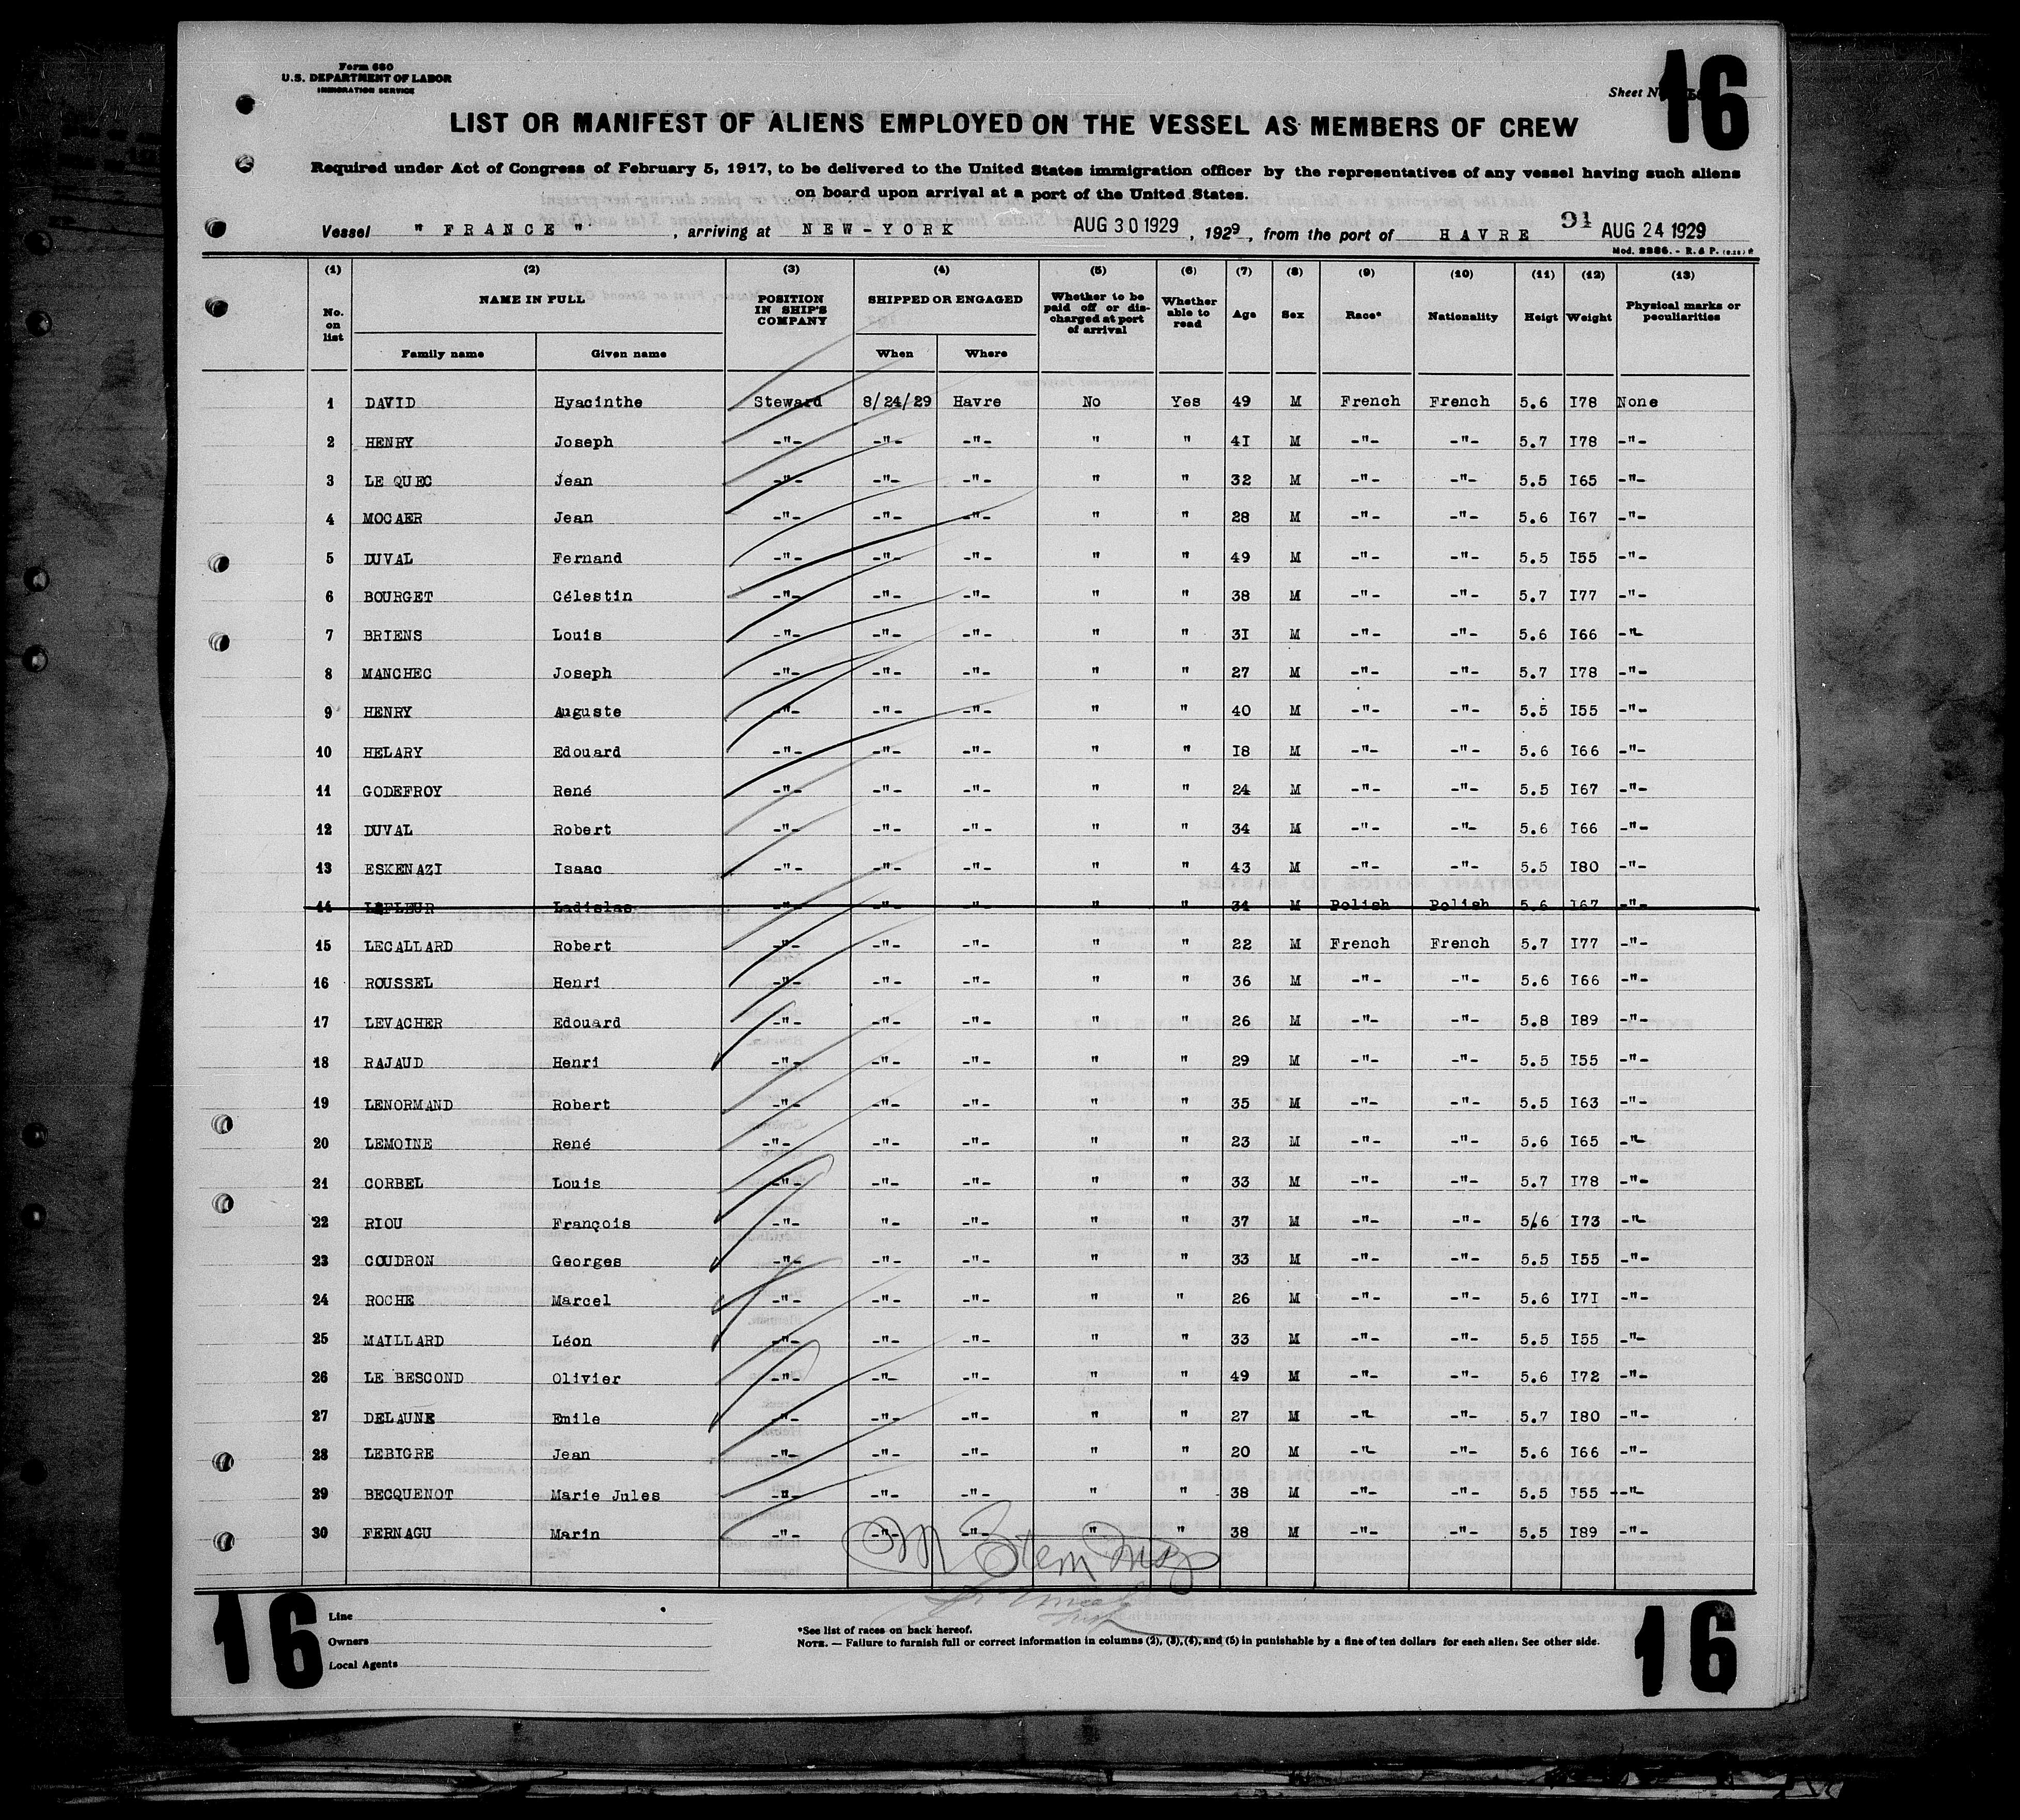 Form 680
U.S. DEPARTMENT OF LABOR
IMMIGRATION SERVICE
Sheet No
16
LIST OR MANIFEST OF ALIENS EMPLOYED ON THE VESSEL AS MEMBERS OF CREW
Required under Act of Congress of February 5, 1917, to be delivered to the United States immigration officer by the representatives of any vessel having such aliens
on board upon arrival at a port of the United States.
Vessel " FRANCE " , arriving at NEW-YORK AUG 30 1929 , 1929 , from the port of HAVRE 91 AUG 24 1929
Mod. 2286. - R. & P.
(1) (2) (3) (4) (5) (6) (7) (8) (9) (10) (11) (12) (13)
No. on list NAME IN FULL POSITION IN SHIP'S COMPANY SHIPPED OR ENGAGED Whether to be paid off or discharged at port of arrival Whether able to read Age Sex Race* Nationality Heigt Weight Physical marks or peculiarities
Family name Given name When Where
1 DAVID Hyacinthe Steward 8/24/29 Havre No Yes 49 M French French 5.6 I78 None
2 HENRY Joseph -"- -"- -"- " " 4I M -"- -"- 5.7 I78 -"-
3 LE QUEC Jean -"- -"- -"- " " 32 M -"- -"- 5.5 I65 -"-
4 MOCAER Jean -"- -"- -"- " " 28 M -"- -"- 5.6 I67 -"-
5 DUVAL Fernand -"- -"- -"- " " 49 M -"- -"- 5.5 I55 -"-
6 BOURGET Célestin -"- -"- -"- " " 38 M -"- -"- 5.7 I77 -"-
7 BRIENS Louis -"- -"- -"- " " 3I M -"- -"- 5.6 I66 -"-
8 MANCHEC Joseph -"- -"- -"- " " 27 M -"- -"- 5.7 I78 -"-
9 HENRY Auguste -"- -"- -"- " " 40 M -"- -"- 5.5 I55 -"-
10 HELARY Edouard -"- -"- -"- " " I8 M -"- -"- 5.6 I66 -"-
11 GODEFROY René -"- -"- -"- " " 24 M -"- -"- 5.5 I67 -"-
12 DUVAL Robert -"- -"- -"- " " 34 M -"- -"- 5.6 I66 -"-
13 ESKENAZI Isaac -"- -"- -"- " " 43 M -"- -"- 5.5 I80 -"-
14 LEFLEUR Ladislas -"- -"- -"- " " 34 M Polish Polish 5.6 I67 -"-
15 LECALLARD Robert -"- -"- -"- " " 22 M French French 5.7 I77 -"-
16 ROUSSEL Henri -"- -"- -"- " " 36 M -"- -"- 5.6 I66 -"-
17 LEVACHER Edouard -"- -"- -"- " " 26 M -"- -"- 5.8 I89 -"-
18 RAJAUD Henri -"- -"- -"- " " 29 M -"- -"- 5.5 I55 -"-
19 LENORMAND Robert -"- -"- -"- " " 35 M -"- -"- 5.5 I63 -"-
20 LEMOINE René -"- -"- -"- " " 23 M -"- -"- 5.6 I65 -"-
21 CORBEL Louis -"- -"- -"- " " 33 M -"- -"- 5.7 I78 -"-
22 RIOU François -"- "- -"- " " 37 M -"- -"- 5.6 I73 -"-
23 COUDRON Georges -"- -"- -"- " " 33 M -"- -"- 5.5 I55 -"-
24 ROCHE Marcel -"- -"- -"- " " 26 M -"- -"- 5.6 I7I -"-
25 MAILLARD Léon -"- -"- -"- " " 33 M -"- -"- 5.5 I55 -"-
26 LE BESCOND Olivier -"- -"- -"- " " 49 M -"- -"- 5.6 I72 -"-
27 DELAUNE Emile -"- -"- -"- " " 27 M -"- -"- 5.7 I80 -"-
28 LEBIGRE Jean -"- -"- -"- " " 20 M -"- -"- 5.6 I66 -"-
29 BECQUENOT Marie Jules -"- -"- -"- " " 38 M -"- -"- 5.5 I55 -"-
30 FERNAGU Marin -"- -"- -"- " " 38 M -"- -"- 5.5 I89 -"-
M Stern
16
Line
Owners
Local Agents
*See list of races on back hereof.
NOTE. — Failure to furnish full or correct information in columns (2), (3), (4), and (5) in punishable by a fine of ten dollars for each alien. See other side.
16